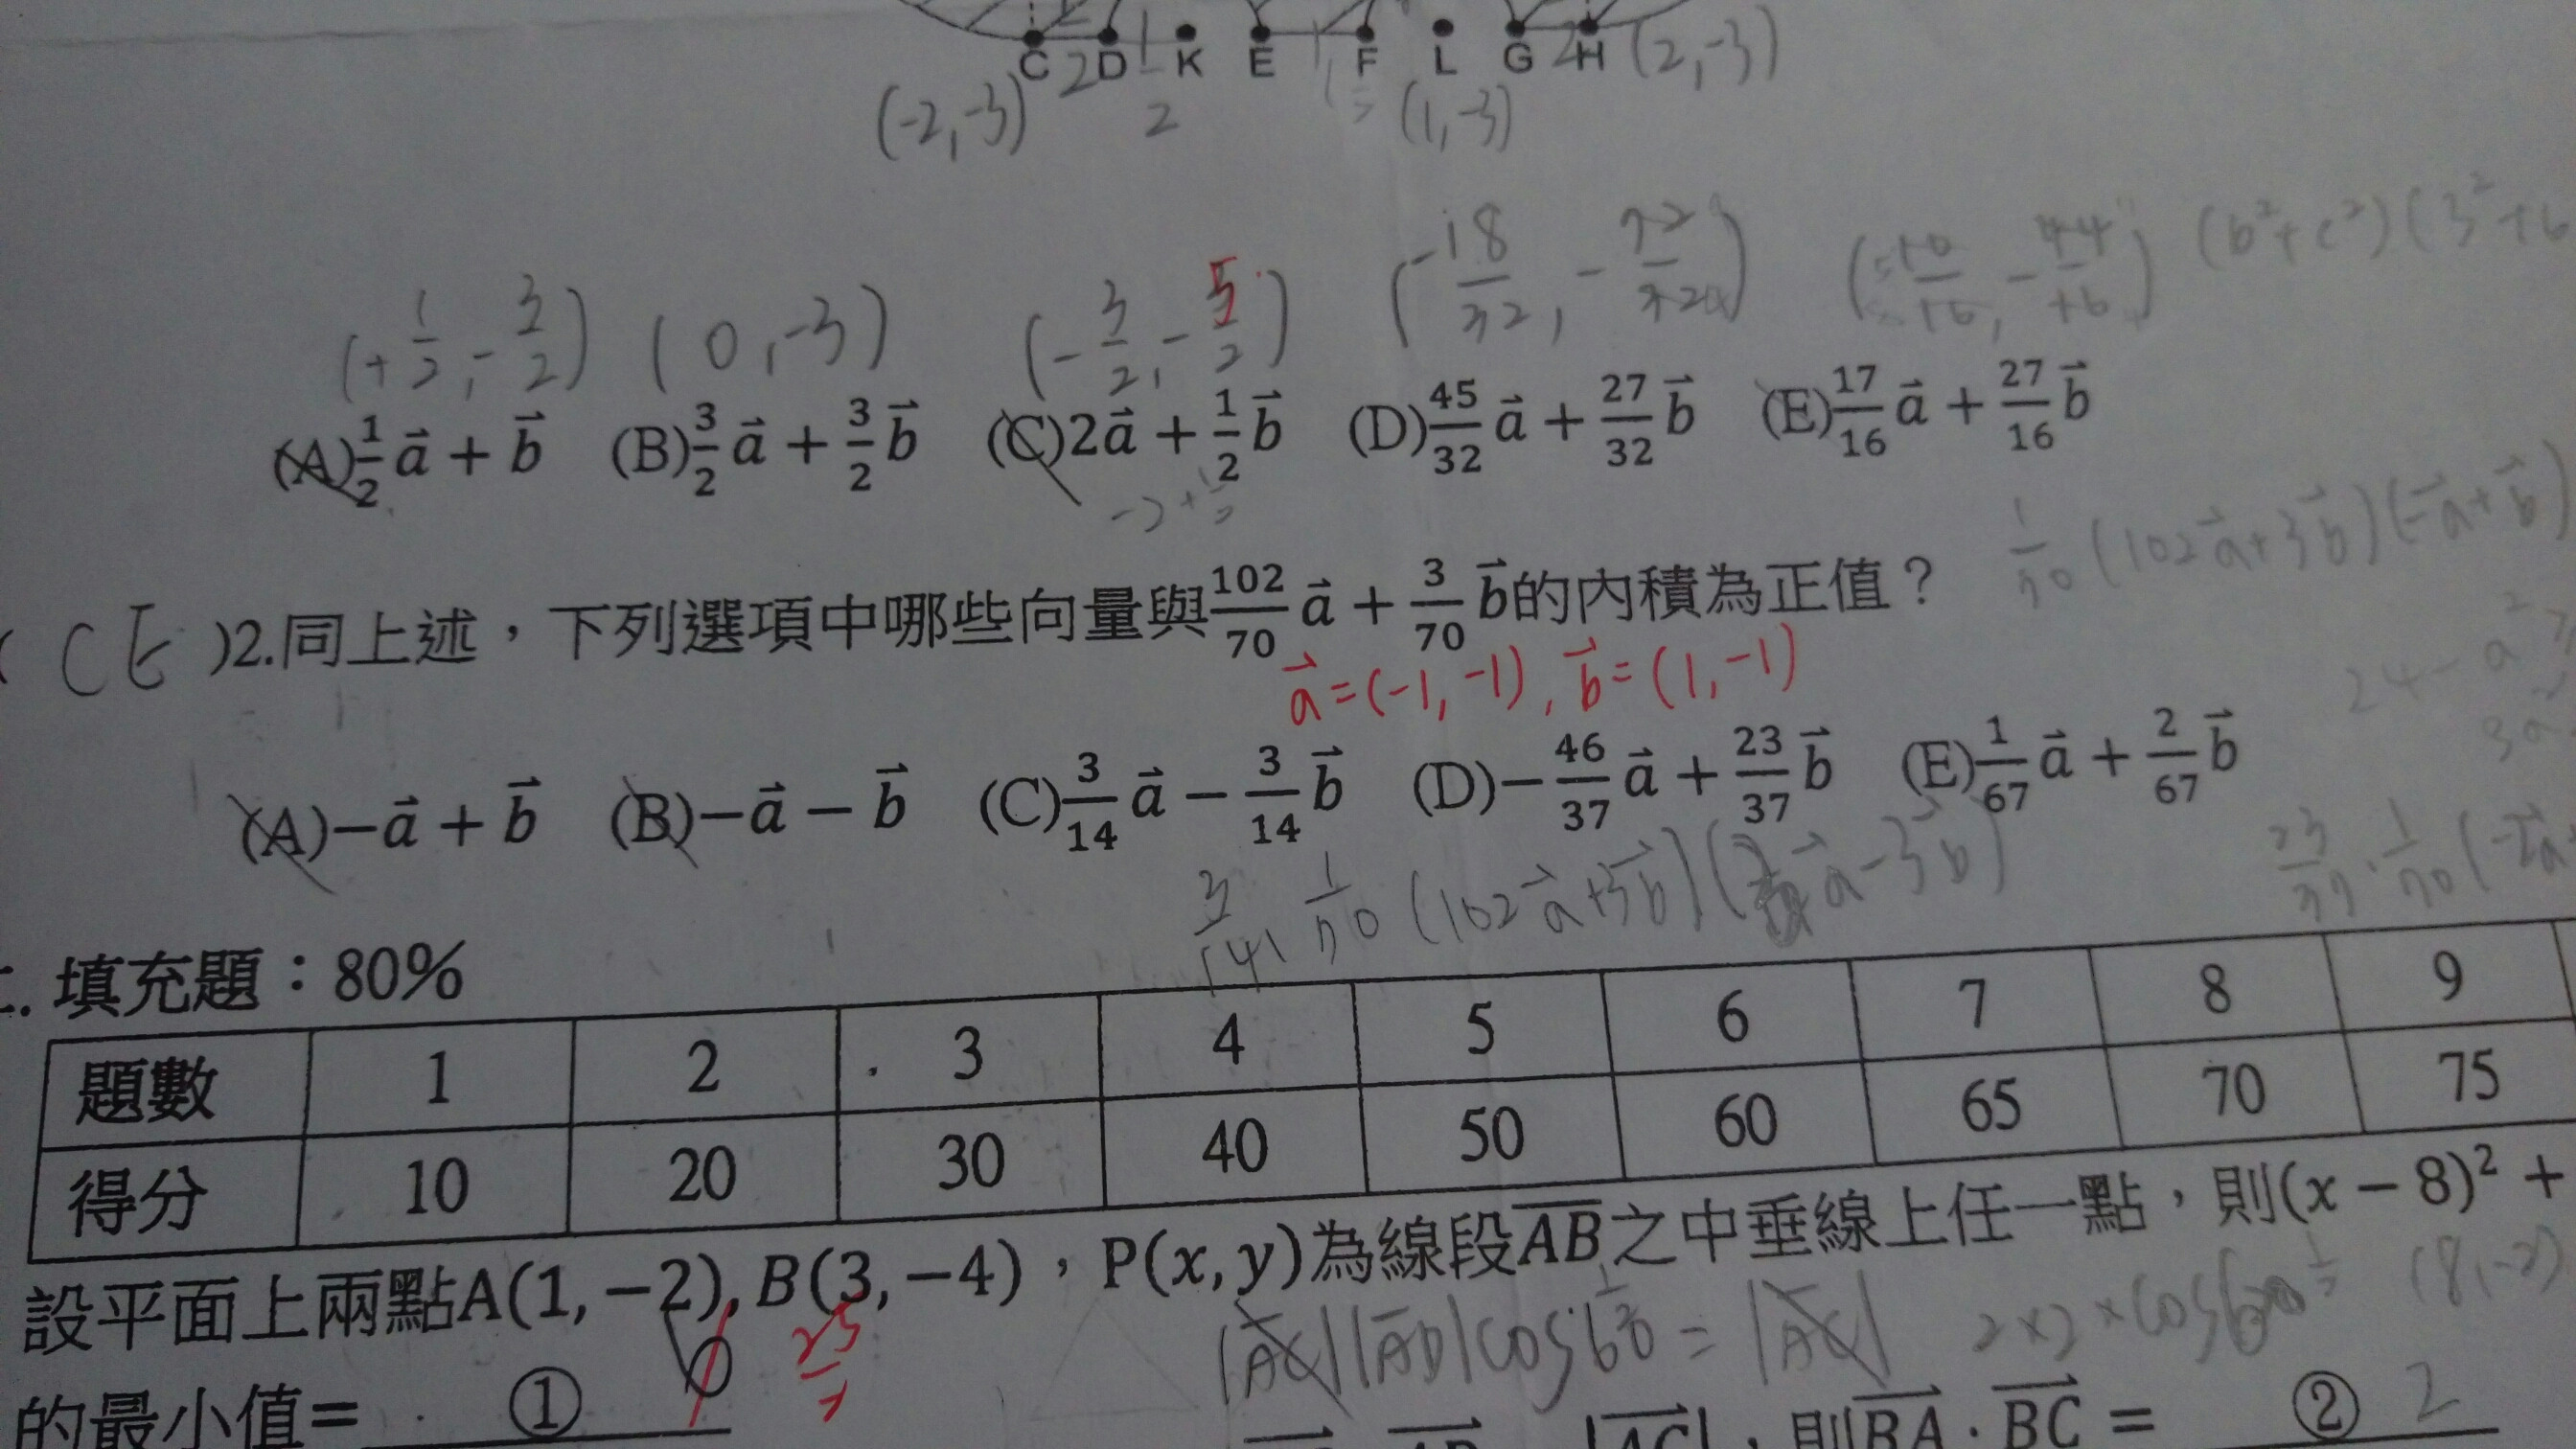 C D K E F L G H (2,-3)
2 1 1/2 2
(-2,-3) 2 (1,-3)
(+1/2,-3/2) (0,-3) (-3/2,-5/2) (b²+c²)(3²+6
(A)1/2 a⃗ + b⃗ (B)3/2 a⃗ + 3/2 b⃗ (C)2a⃗ + 1/2 b⃗ (D)45/32 a⃗ + 27/32 b⃗ (E)17/16 a⃗ + 27/16 b⃗
-2+1/2
1/70 (102a⃗+3b⃗)(-a⃗+b⃗)
( CE )2.同上述，下列選項中哪些向量與102/70 a⃗ + 3/70 b⃗的內積為正值？
a⃗=(-1,-1), b⃗=(1,-1)
(A)−a⃗ + b⃗ (B)−a⃗ − b⃗ (C)3/14 a⃗ − 3/14 b⃗ (D)−46/37 a⃗ + 23/37 b⃗ (E)1/67 a⃗ + 2/67 b⃗
3/14 · 1/70 (102a⃗+3b⃗)( a⃗-3b⃗)
23/37 · 1/70 (-2a-
. 填充題：80%
題數 1 2 3 4 5 6 7 8 9
得分 10 20 30 40 50 60 65 70 75
設平面上兩點A(1,−2), B(3,−4)，P(x,y)為線段AB之中垂線上任一點，則(x − 8)² +
25/2 |AC||AD|cos60° = |AC| (8,-2)
的最小值= ① |AC|，則BA · BC = ② 2